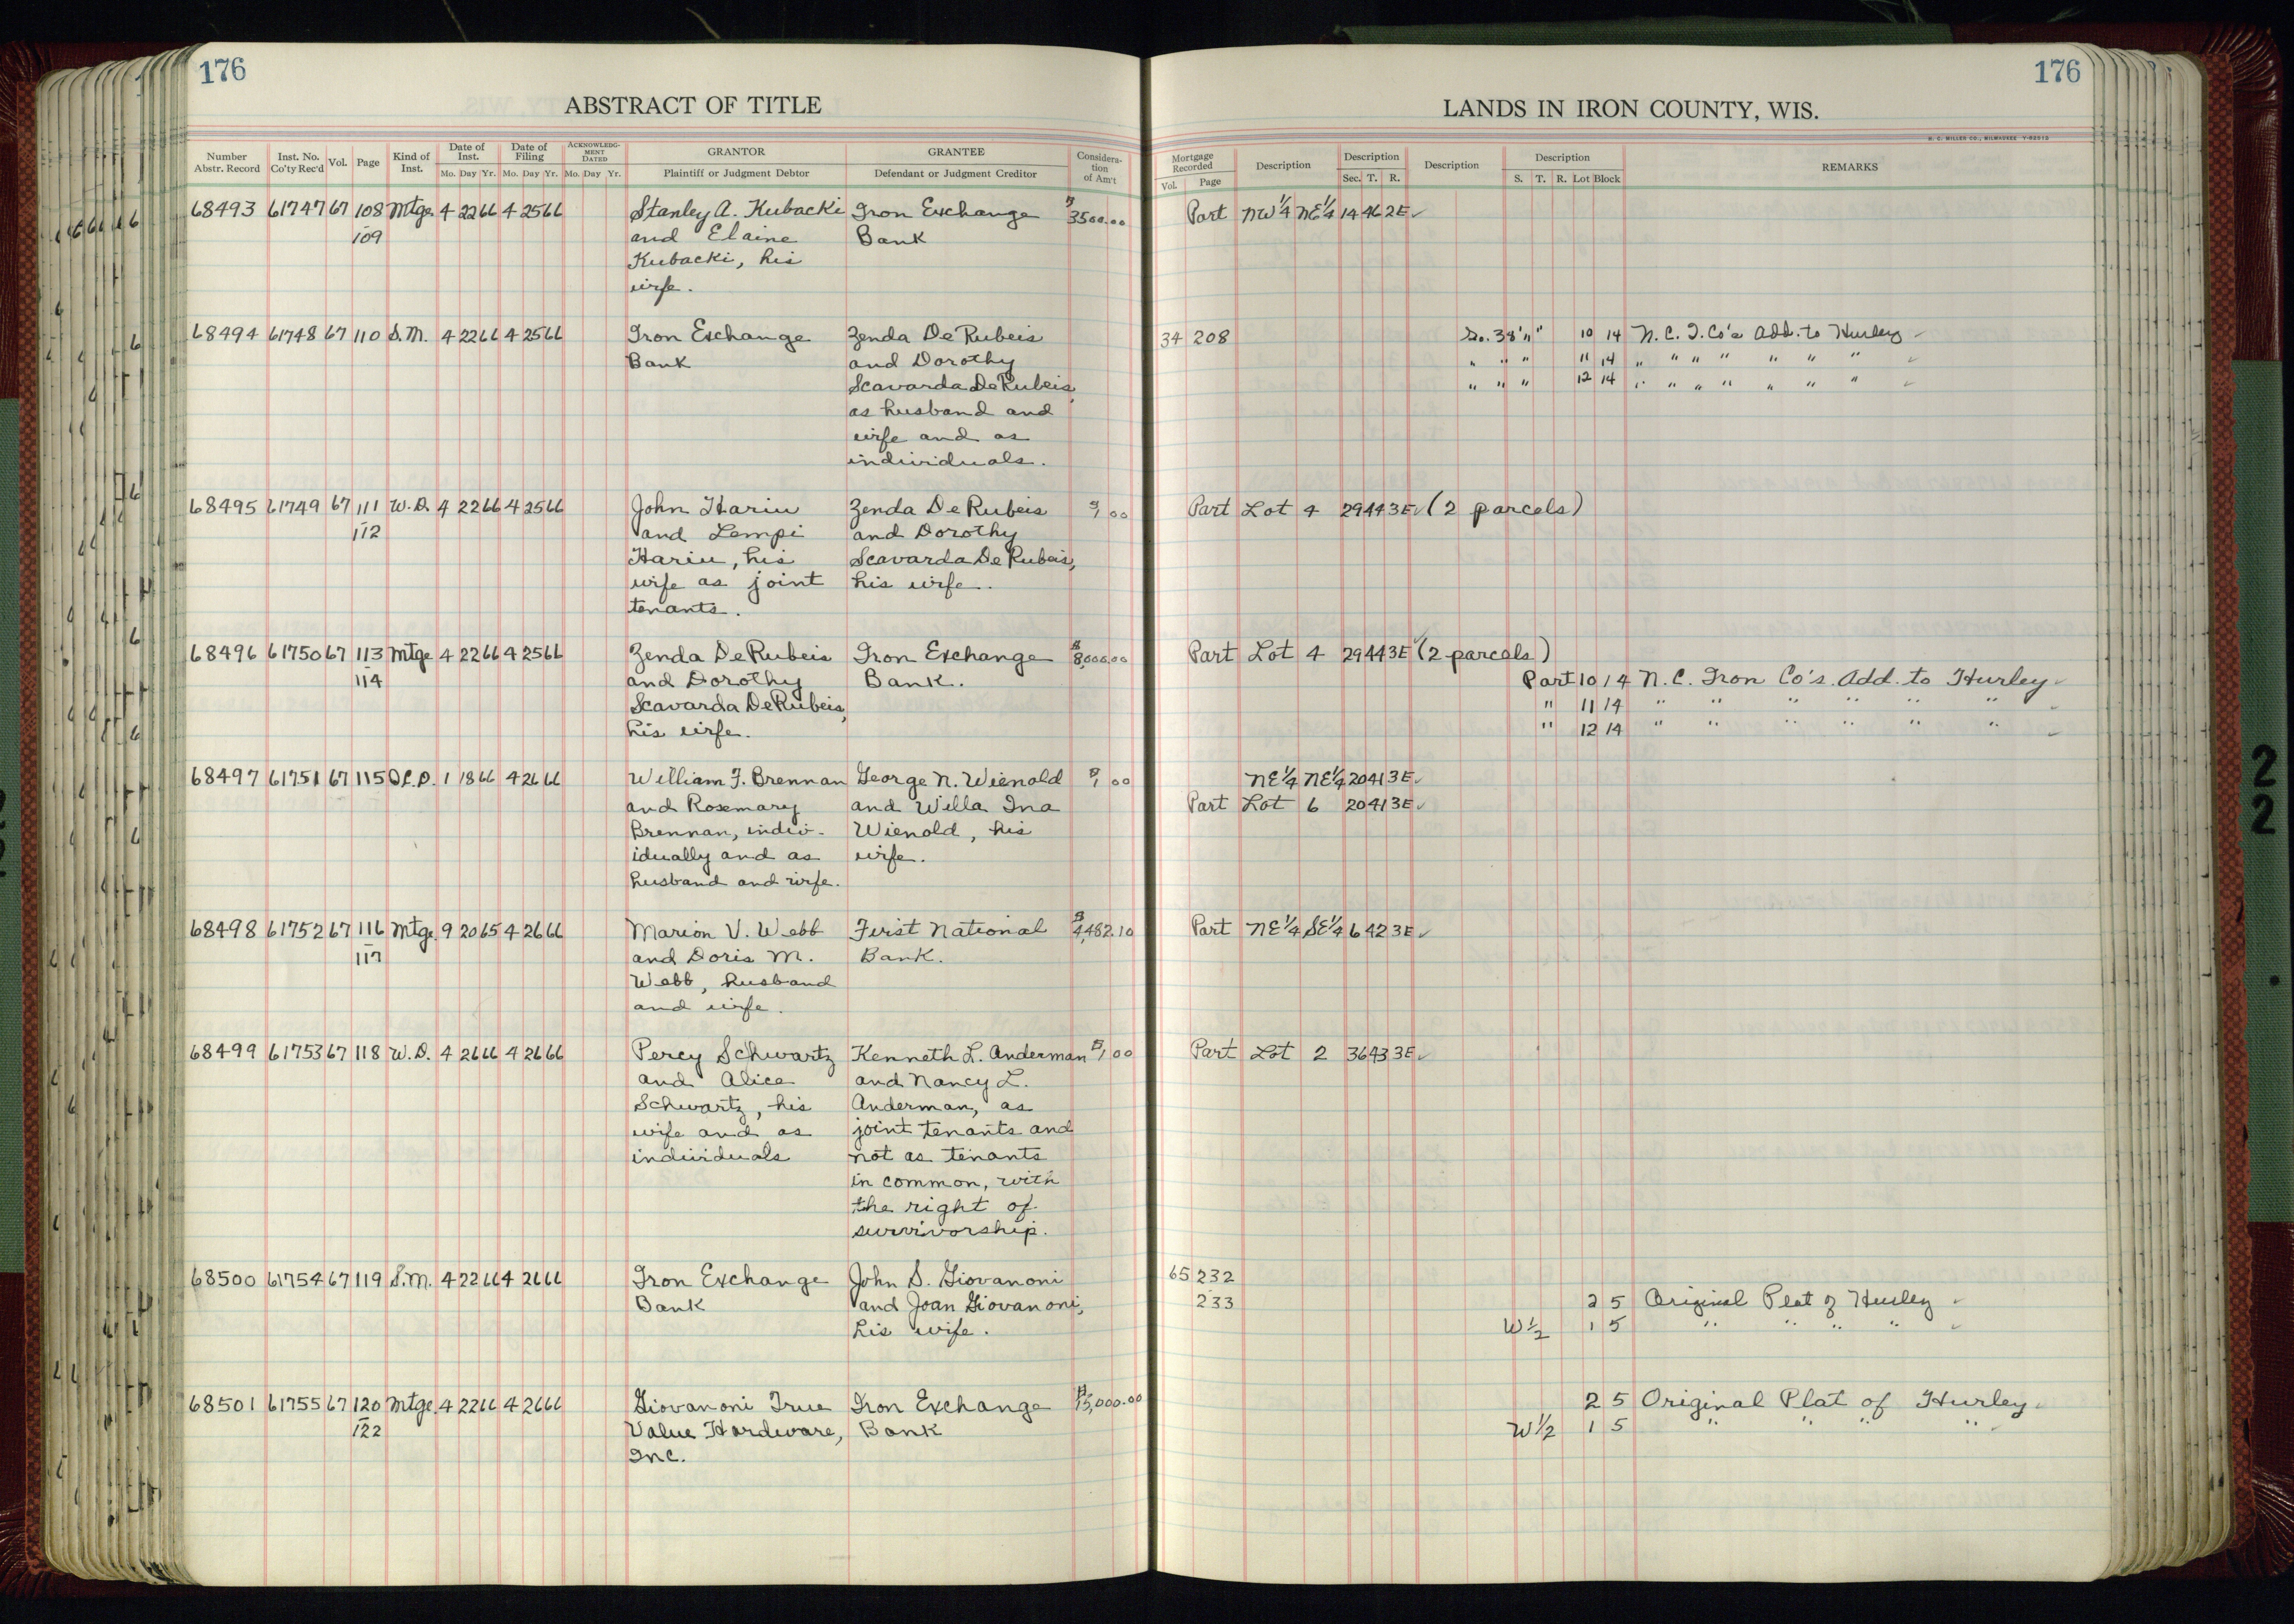 176
ABSTRACT OF TITLE
Number Abstr. Record Inst. No. Co'ty Rec'd Vol. Page Kind of Inst. Date of Inst. Mo. Day Yr. Date of Filing Mo. Day Yr. ACKNOWLEDGMENT DATED Mo. Day Yr. GRANTOR Plaintiff or Judgment Debtor GRANTEE Defendant or Judgment Creditor Consideration of Am't
68493 61747 67 108 Mtge. 4 22 66 4 25 66 Stanley A. Kubacki Iron Exchange $3500.00
109 and Elaine Bank
Kubacki, his
wife.
68494 61748 67 110 S.M. 4 22 66 4 25 66 Iron Exchange Zenda De Rubeis
Bank and Dorothy
Scavarda De Rubeis,
as husband and
wife and as
individuals.
68495 61749 67 111 W.D. 4 22 66 4 25 66 John Hariu Zenda De Rubeis $1.00
112 and Lempi and Dorothy
Hariu, his Scavarda De Rubeis,
wife as joint his wife.
tenants.
68496 61750 67 113 Mtge 4 22 66 4 25 66 Zenda De Rubeis Iron Exchange $8,000.00
114 and Dorothy Bank.
Scavarda De Rubeis,
his wife.
68497 61751 67 115 Q.C.D. 1 18 66 4 26 66 William F. Brennan George N. Wienold $1.00
and Rosemary and Willa Ina
Brennan, indiv- Wienold, his
idually and as wife.
husband and wife.
68498 61752 67 116 Mtge. 9 20 65 4 26 66 Marion V. Webb First National $4,482.10
117 and Doris M. Bank.
Webb, husband
and wife.
68499 61753 67 118 W.D. 4 26 66 4 26 66 Percy Schwartz Kenneth L. Anderman $1.00
and Alice and Nancy L.
Schwartz, his Anderman, as
wife and as joint tenants and
individuals not as tenants
in common, with
the right of
survivorship.
68500 61754 67 119 S.M. 4 22 66 4 26 66 Iron Exchange John S. Giovanoni
Bank and Joan Giovanoni,
his wife.
68501 61755 67 120 Mtge. 4 22 66 4 26 66 Giovanoni True Iron Exchange $15,000.00
122 Value Hardware, Bank
Inc.
176
LANDS IN IRON COUNTY, WIS.
H. C. MILLER CO., MILWAUKEE
Mortgage Recorded Vol. Page Description Description Sec. T. R. Description Description S. T. R. Lot Block REMARKS
Part NW¼ NE¼ 14 46 2E ✓
34 208 So. 38' " " 10 14 N.C.I. Co's Add. to Hurley ✓
" " " 11 14 " " " " " " " ✓
" " " 12 14 " " " " " " " ✓
Part Lot 4 29 44 3E ✓ (2 parcels)
Part Lot 4 29 44 3E ✓ (2 parcels)
Part 10 14 N.C. Iron Co's. Add. to Hurley ✓
" 11 14 " " " " " " ✓
" 12 14 " " " " " " ✓
NE¼ NE¼ 20 41 3E ✓
Part Lot 6 20 41 3E ✓
Part NE¼ SE¼ 6 42 3E ✓
Part Lot 2 36 43 3E ✓
65 232
233 2 5 Original Plat of Hurley ✓
W½ 1 5 " " " " ✓
2 5 Original Plat of Hurley ✓
W½ 1 5 " " " " ✓
2
2